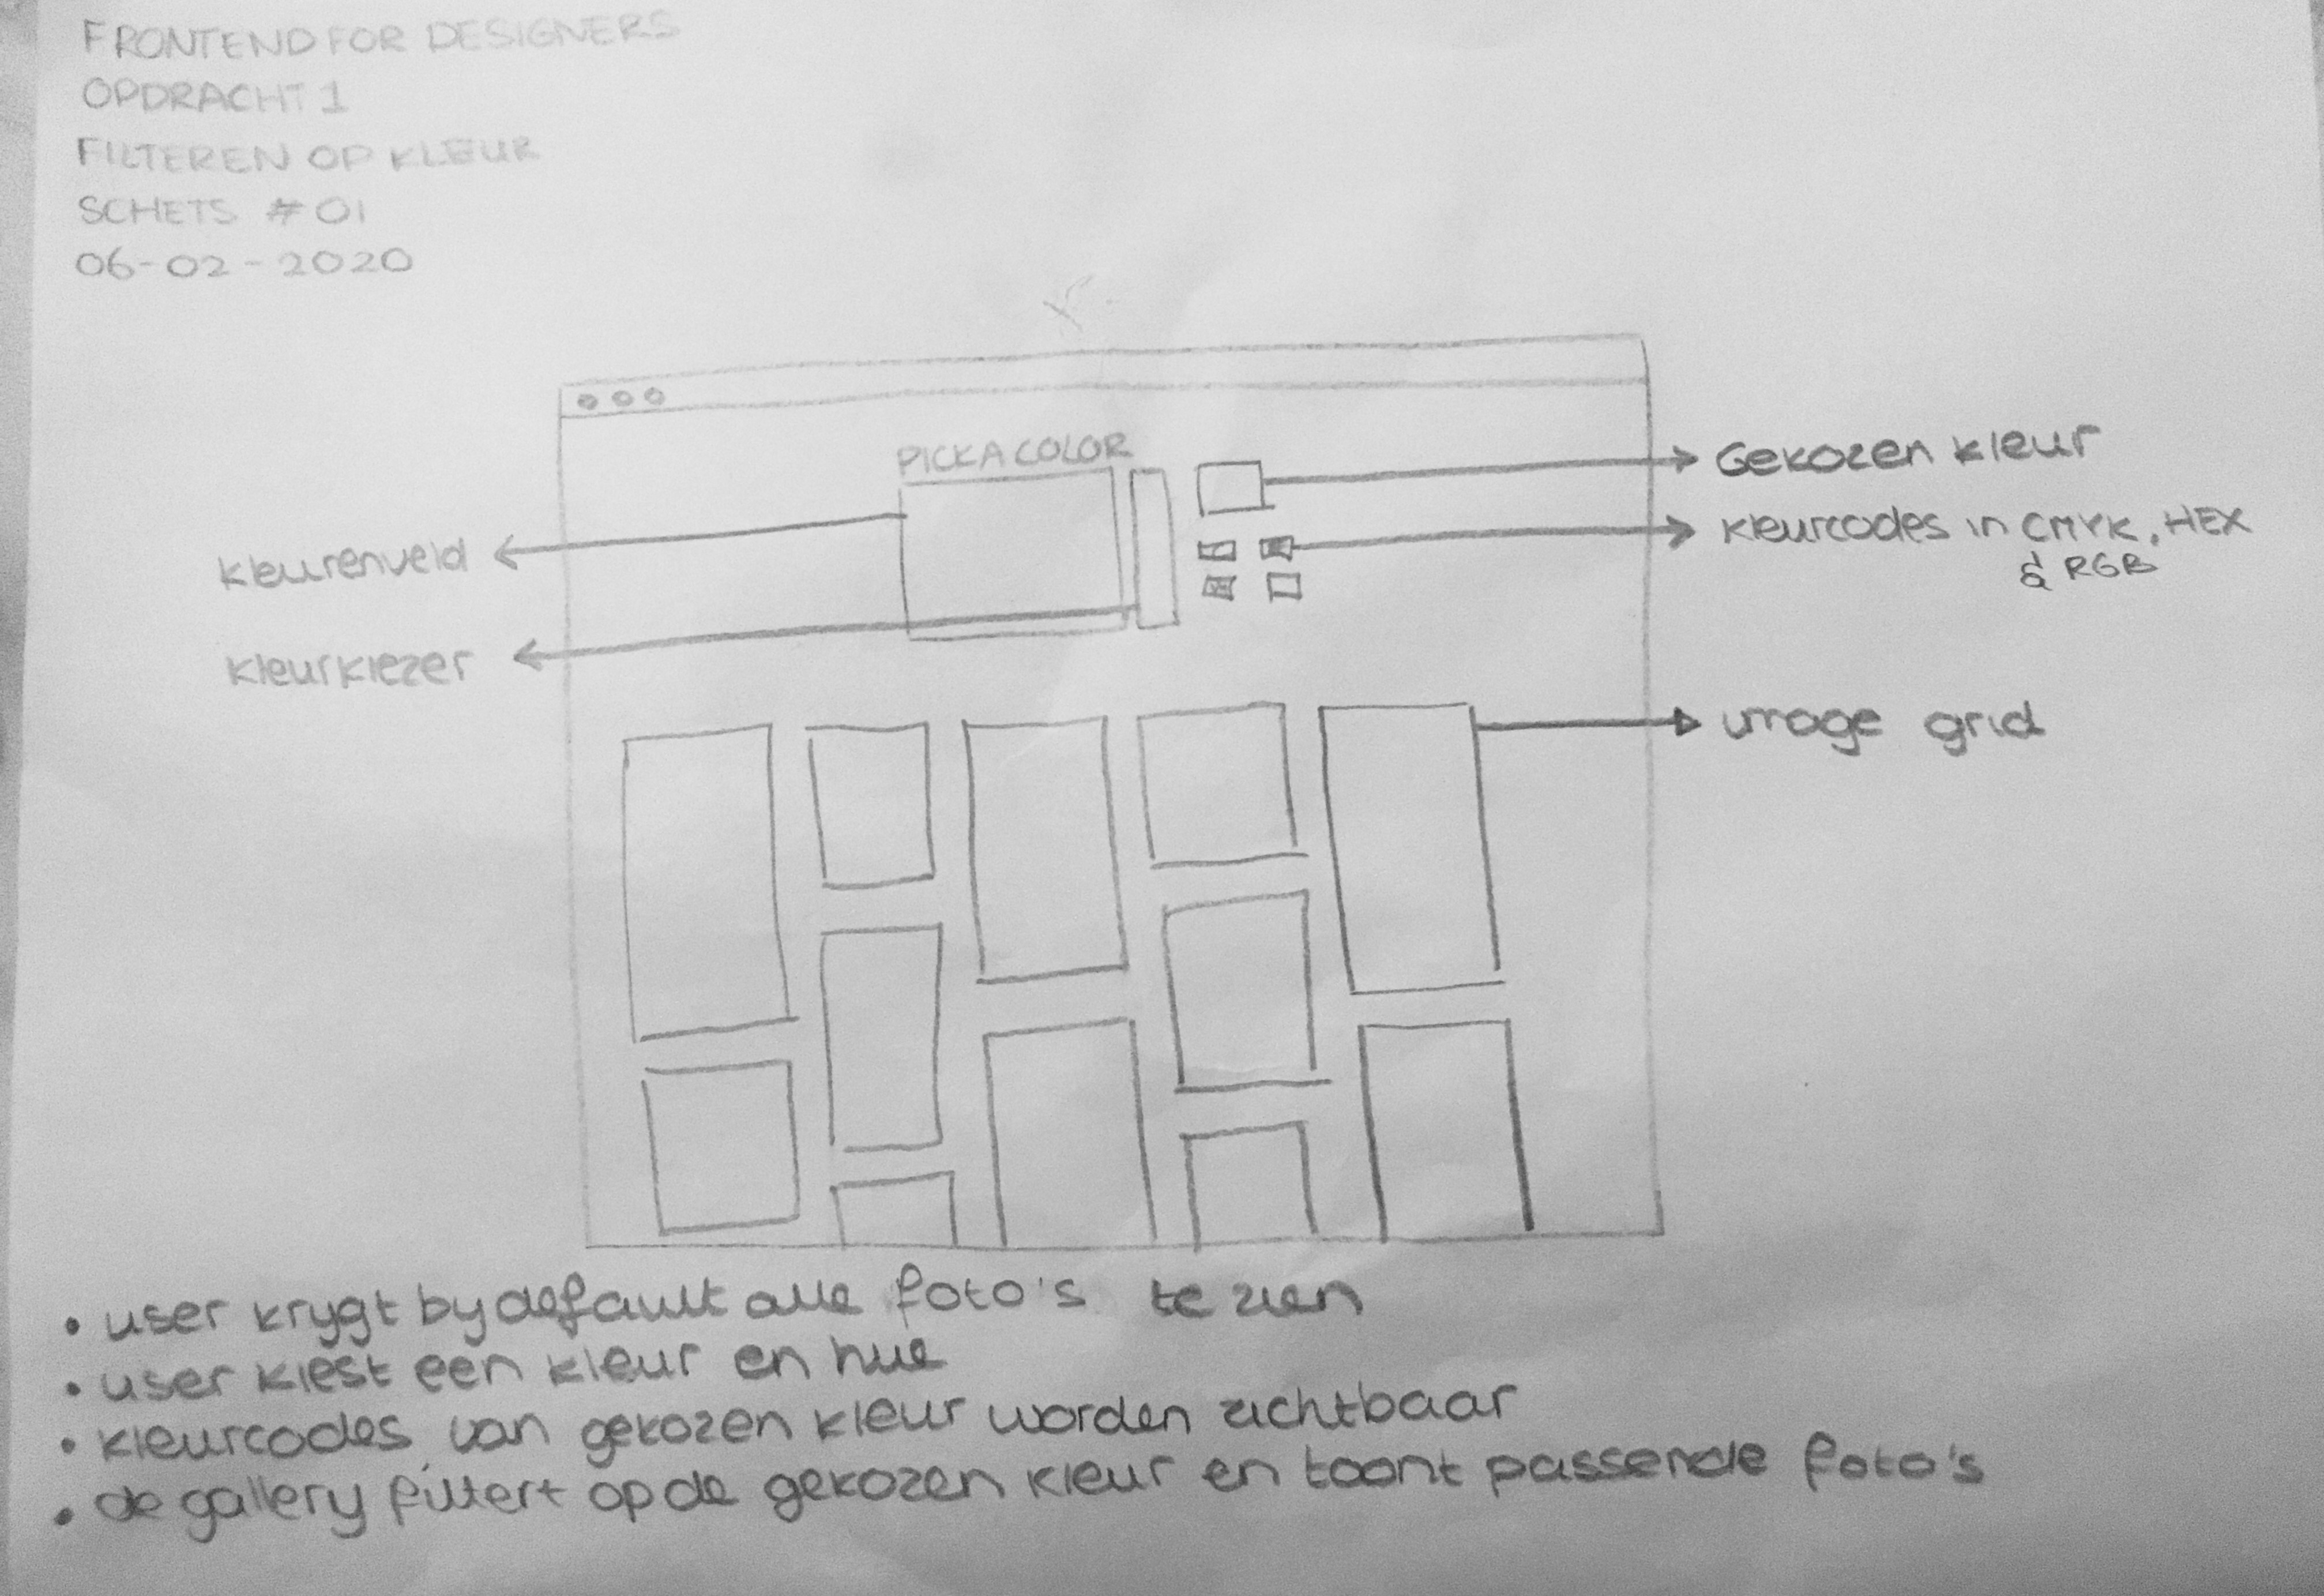 FRONTEND FOR DESIGNERS
OPDRACHT 1
FILTEREN OP KLEUR
SCHETS #01
06-02-2020
PICK A COLOR
Gekozen kleur
kleurcodes in CMYK, HEX
& RGB
kleurenveld
kleurkiezer
image grid
• user krygt by default alle foto's te zien
• user kiest een kleur en hue
• kleurcodes van gekozen kleur worden zichtbaar
• de gallery filtert op de gekozen kleur en toont passende foto's